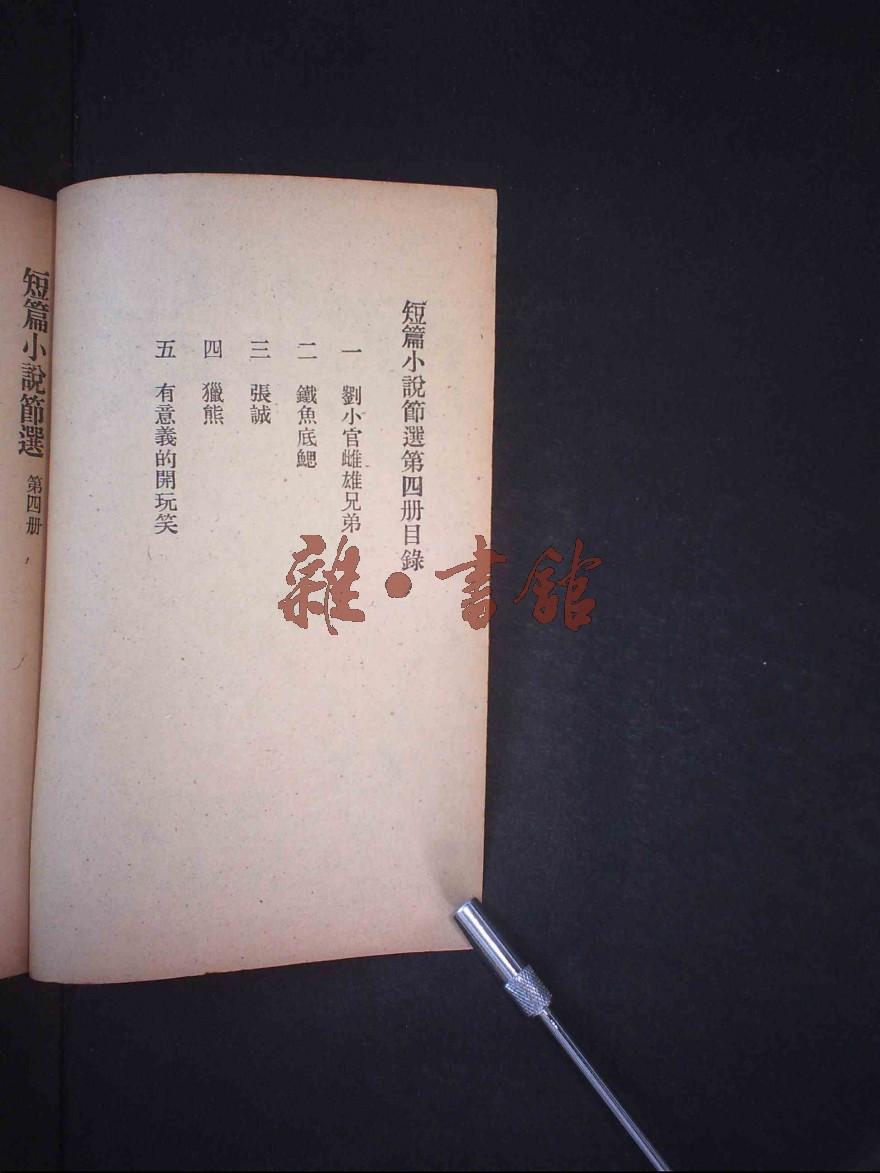 短篇小說節選第四册目錄
一 劉小官雌雄兄弟
二 鐵魚底鰓
三 張誠
四 獵熊
五 有意義的開玩笑
短篇小說節選 第四册
雜·書館